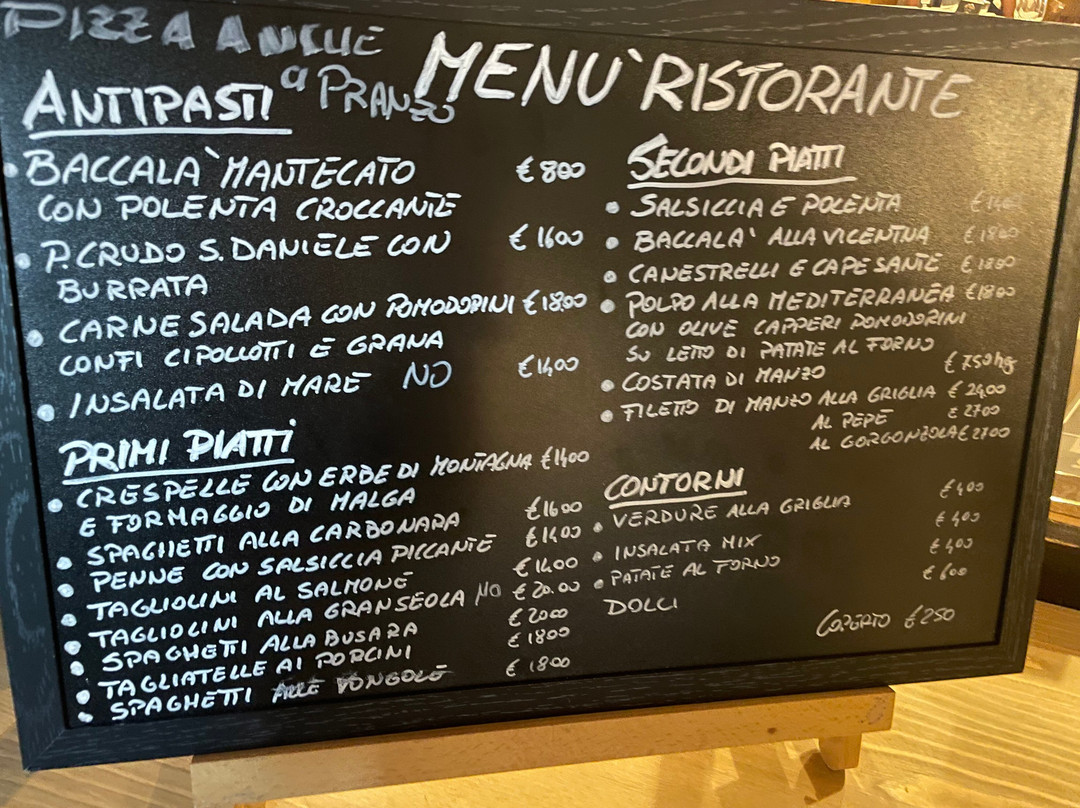 PIZZA ANCHE
a PRANZO
MENU` RISTORANTE
ANTIPASTI
BACCALA` MANTECATO € 800
CON POLENTA CROCCANTE
P. CRUDO S. DANIELE CON € 1600
BURRATA
CARNE SALADA CON POMODORINI € 18.00
CONFI CIPOLLOTTI E GRANA
INSALATA DI MARE NO € 1400
PRIMI PIATTI
CRESPELLE CON ERBE DI MONTAGNA € 1400
E FORMAGGIO DI MALGA
SPAGHETTI ALLA CARBONARA € 1600
PENNE CON SALSICCIA PICCANTE € 1400
TAGLIOLINI AL SALMONE € 1400
TAGLIOLINI ALLA GRANSEOLA NO € 20.00
SPAGHETTI ALLA BUSARA € 2000
TAGLIATELLE AI PORCINI € 1800
SPAGHETTI ALLE VONGOLE € 1800
SECONDI PIATTI
SALSICCIA E POLENTA €
BACCALA` ALLA VICENTINA € 1800
CANESTRELLI E CAPESANTE € 1800
POLPO ALLA MEDITERRANEA € 1800
CON OLIVE CAPPERI POMODORINI
SU LETTO DI PATATE AL FORNO
COSTATA DI MANZO € 750 hg
FILETTO DI MANZO ALLA GRIGLIA € 2400
AL PEPE € 2700
AL GORGONZOLA € 2700
CONTORNI
VERDURE ALLA GRIGLIA € 400
INSALATA MIX € 400
PATATE AL FORNO € 400
DOLCI € 600
COPERTO € 250